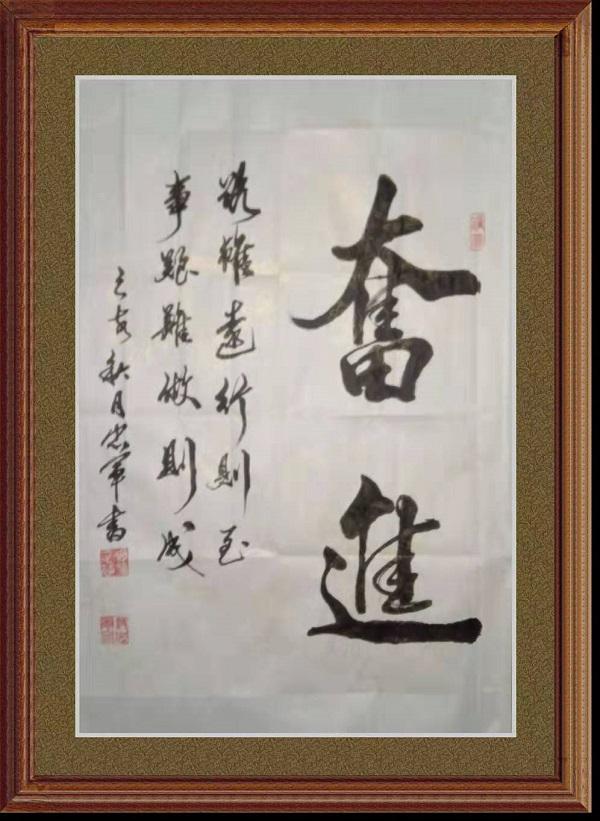 奮進
路雖遠行則至
事雖難做則成
己亥秋月忠軍書